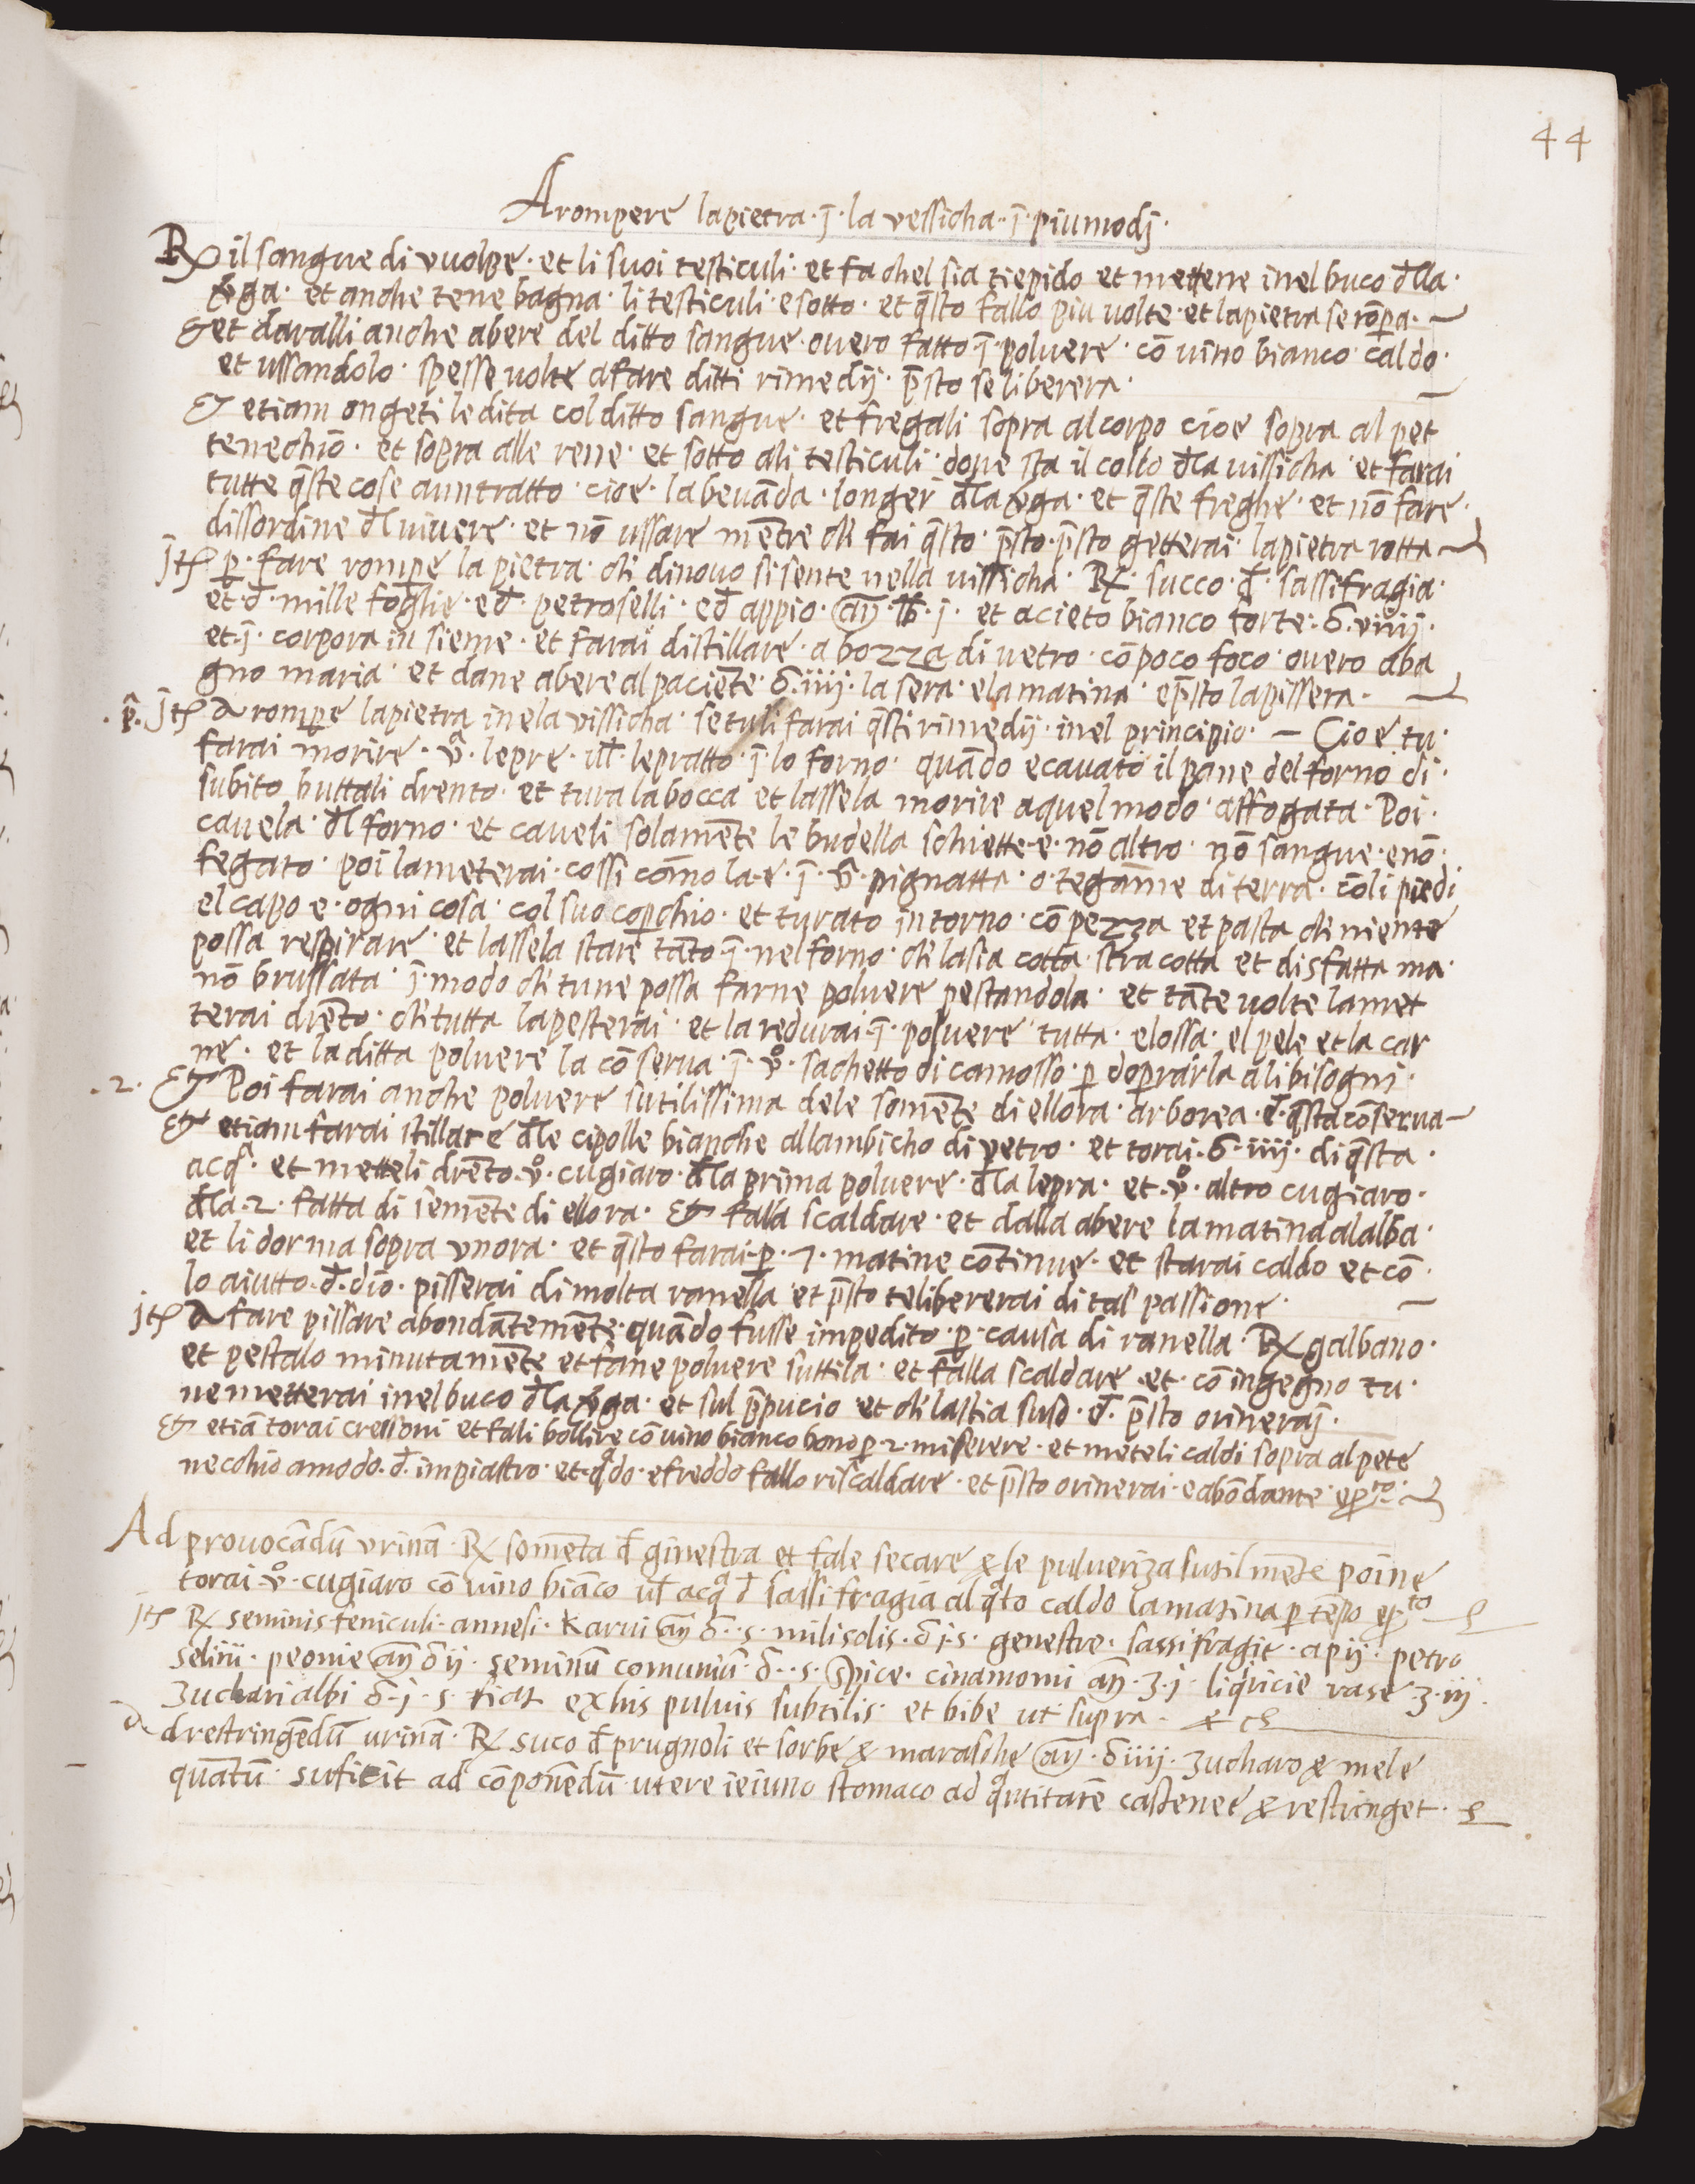 44
A rompere la pietra · ī · la vessicha · ī · piu modj ·
℞ il sangue di vuolpe · et li suoi testiculi · et fa chel sia tiepido et mettene inel buco d̄lla ·
v̄ga · et anche tene bagna · li testiculi · e sotto · et q̄sto fallo piu uolte · et la pietra se rōpa · ~
& et daralli anche a bere del ditto sangue · ouero fatto · ī · poluere · cō uino bianco caldo ·
et ussandolo · spesse uolte a fare ditti rimedij · p̄sto se liberera ·
& etiam ongeti le dita col ditto sangue · et fregali sopra al corpo cioe sopra al pet
tenechiō · et sopra alle rene · et sotto ali testiculi · doue sta il collo d̄la uissicha · et farai
tutte q̄ste cose aun tratto · cioe · la beuāda · longer d̄la v̄ga · et q̄ste freghe · et nō fare ·
dissordine d̄l uiuere · et nō ussare mētre ch̄ fai q̄sto · p̄sto · p̄sto getterai · la pietra rotta ~
Jtē p̱ · fare rompe la pietra · ch̄ dinouo si sente nella uissicha · ℞ · succo · d̄ · sassifragia ·
et · d̄ · mille foglie · e d̄ · petroselli · e d̄ appio · añ · lb · j · et acieto bianco forte · δ · viiij ·
et · ī · corpora in sieme · et farai distillare · a bozza di uetro · cō poco foco · ouero a ba
gno maria · et dane a bere al paciēte · δ · iiij · la sera · e la matina · e p̄sto la pissera ·
· p̄ · Jtē A rompe la pietra inela vissicha · se tu li farai q̄sti rimedij · inel principio · — Cioe tu ·
farai morire · v̊ · lepre · ul̄ · lepratto · ī lo forno · quādo e cauato il pane del forno di ·
subito buttali drento · et tura la bocca et lassela morire a quel modo · affogata · Poi ·
cauela · d̄l forno · et caueli solamēte le budella schiette · e · nō altro · nō sangue · e nō ·
fegato · poi la meterai · cossi cōmo la · e · ī · v̄ · pignatta · o · tegame di terra · cō li piedi
el capo e · ogni cosa · col suo cop̱chio · et turato intorno · cō pezza et pasta ch̄ niente
possa respirare · et lassela stare tāto ī · nel forno · ch̄ la sia cotta · stra cotta et disfatta ma ·
nō brussata · ī · modo ch̄ tu ne possa farne poluere pestandola · et tāte uolte la met
terai drēto · ch̄ tutta la pesterai · et la redurai · ī · poluere · tutta · e lossa · el pele et la car
ne · et la ditta poluere la cō serua · ī · v̊ · sachetto di camosso · p̱ dop̱rarla ali bisogni ·
· 2 · & Poi farai anche poluere sutilissima dele somēte di ellora · arborea · e · q̄sta cōserua ~
& etiam farai stillare d̄le cipolle bianche allambicho di vetro · et torai · δ · iiij · di q̄sta ·
acq̃ · et metteli drēto · v̊ · cugiaro · d̄la prima poluere · d̄la lepra · et · v̊ · altro cugiaro ·
d̄la · 2 · fatta di semēte di ellora · & falla scaldare · et dalla a bere la matina alalba ·
et li dorma sopra vnora · et q̄sto farai · p̱ · 7 · matine cōtinue · et starai caldo et cō ·
lo aiutto · d̄ · dio · pisserai di molta ranella · et p̄sto te libererai di tal passione ·
Jtē A fare pissare abondātemēte · quādo fusse impedito · p̱ · causa di ranella · ℞ galbano ·
et pestalo minutamēte et fane poluere suttila · et falla scaldare · et · cō ingegno tu ·
ne metterai inel buco d̄la v̄ga · et sul p̄pucio et ch̄ la stia suso · e · p̄sto orineraj ·
& etiā torai cressoni et fali bollire cō uino bianco bono p̱ · 2 · miserere · et meteli caldi sopra al pete
necchio amodo · d̄ · impiastro · et · q̃do · e freddo fallo riscaldare · et p̄sto orinerai · e abōdante · ep̱to · ~
Ad prouocādū vrinā · ℞ somēta d̄ ginestra et fale secare & le pulueriza sutilmēte poi ne
torai · v̊ · cugiaro cō uino biāco ul̄ acq̃ d̄ sassifragia al q̃to caldo la matina p̱ tēpo ep̱to
Jtē ℞ seminis feniculi · annesi · karui añ δ · s · milisolis · δ j · s · genestre · sassifragie · apij · petro
selinū · peonie añ δ ij · seminū comuniū · δ · s · spice · cinamomi añ · ʒ · j · liq̃ricie rase ʒ · iij ·
zuchari albi δ · j · s · fiat ex his puluis subtilis · et bibe ut supra · & c̄
Ad restringēdū urinā · ℞ suco d̄ prugnoli et sorbe & marasche añ · δ iiij · zucharo & mele
quātū · suficit ad cōponēdū utere ieiuno stomaco ad q̃ntitatē castenee & restringet ·